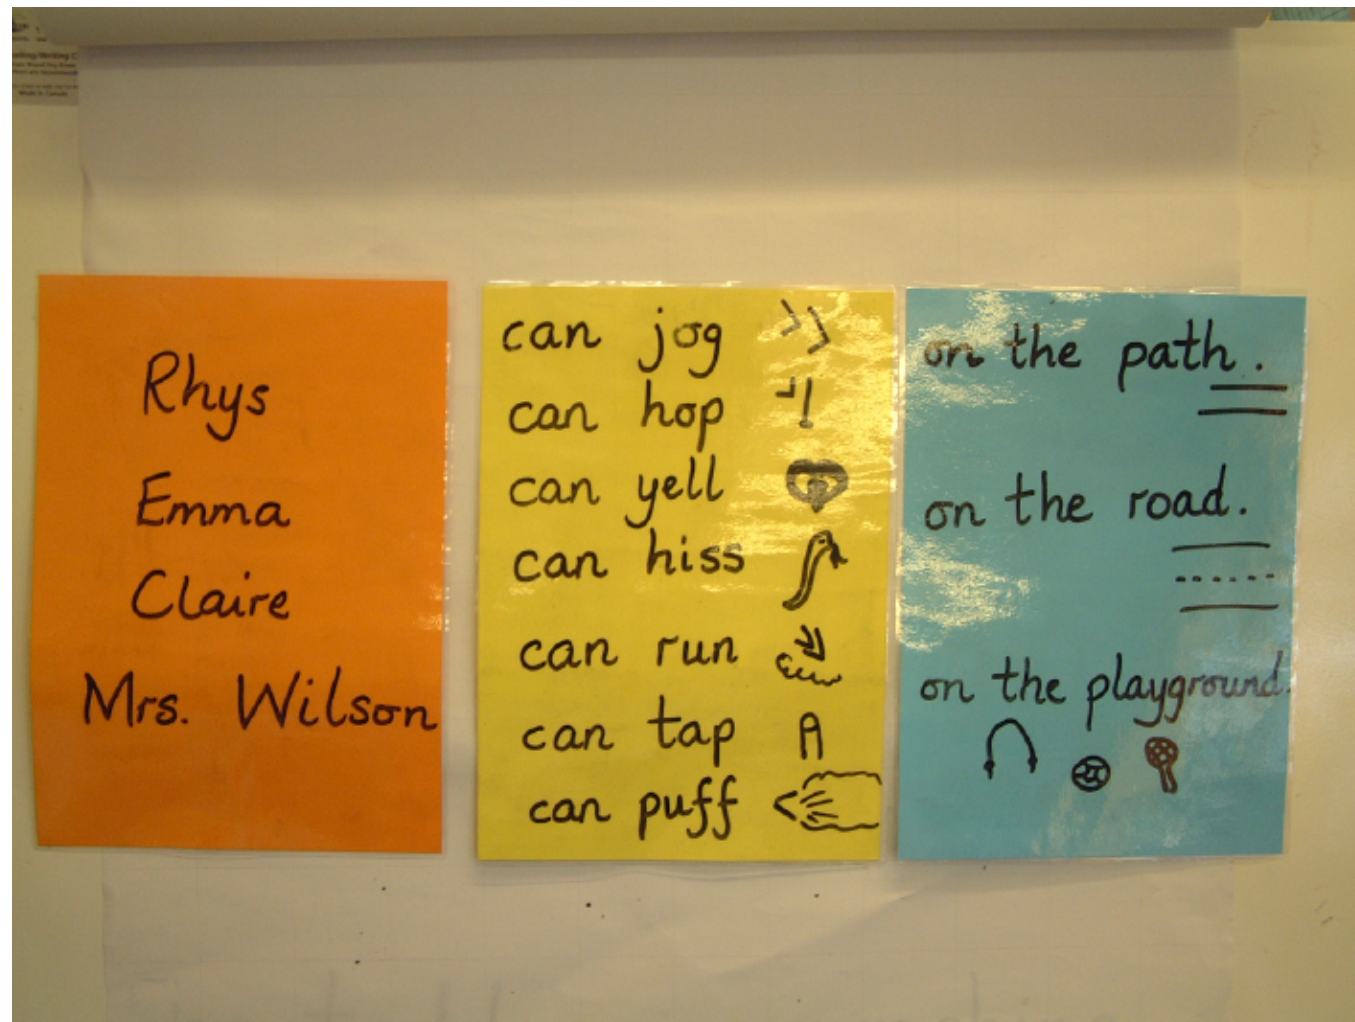 Made in Canada
Rhys
Emma
Claire
Mrs. Wilson
can jog
can hop
can yell
can hiss
can run
can tap
can puff
on the path.
on the road.
on the playground.